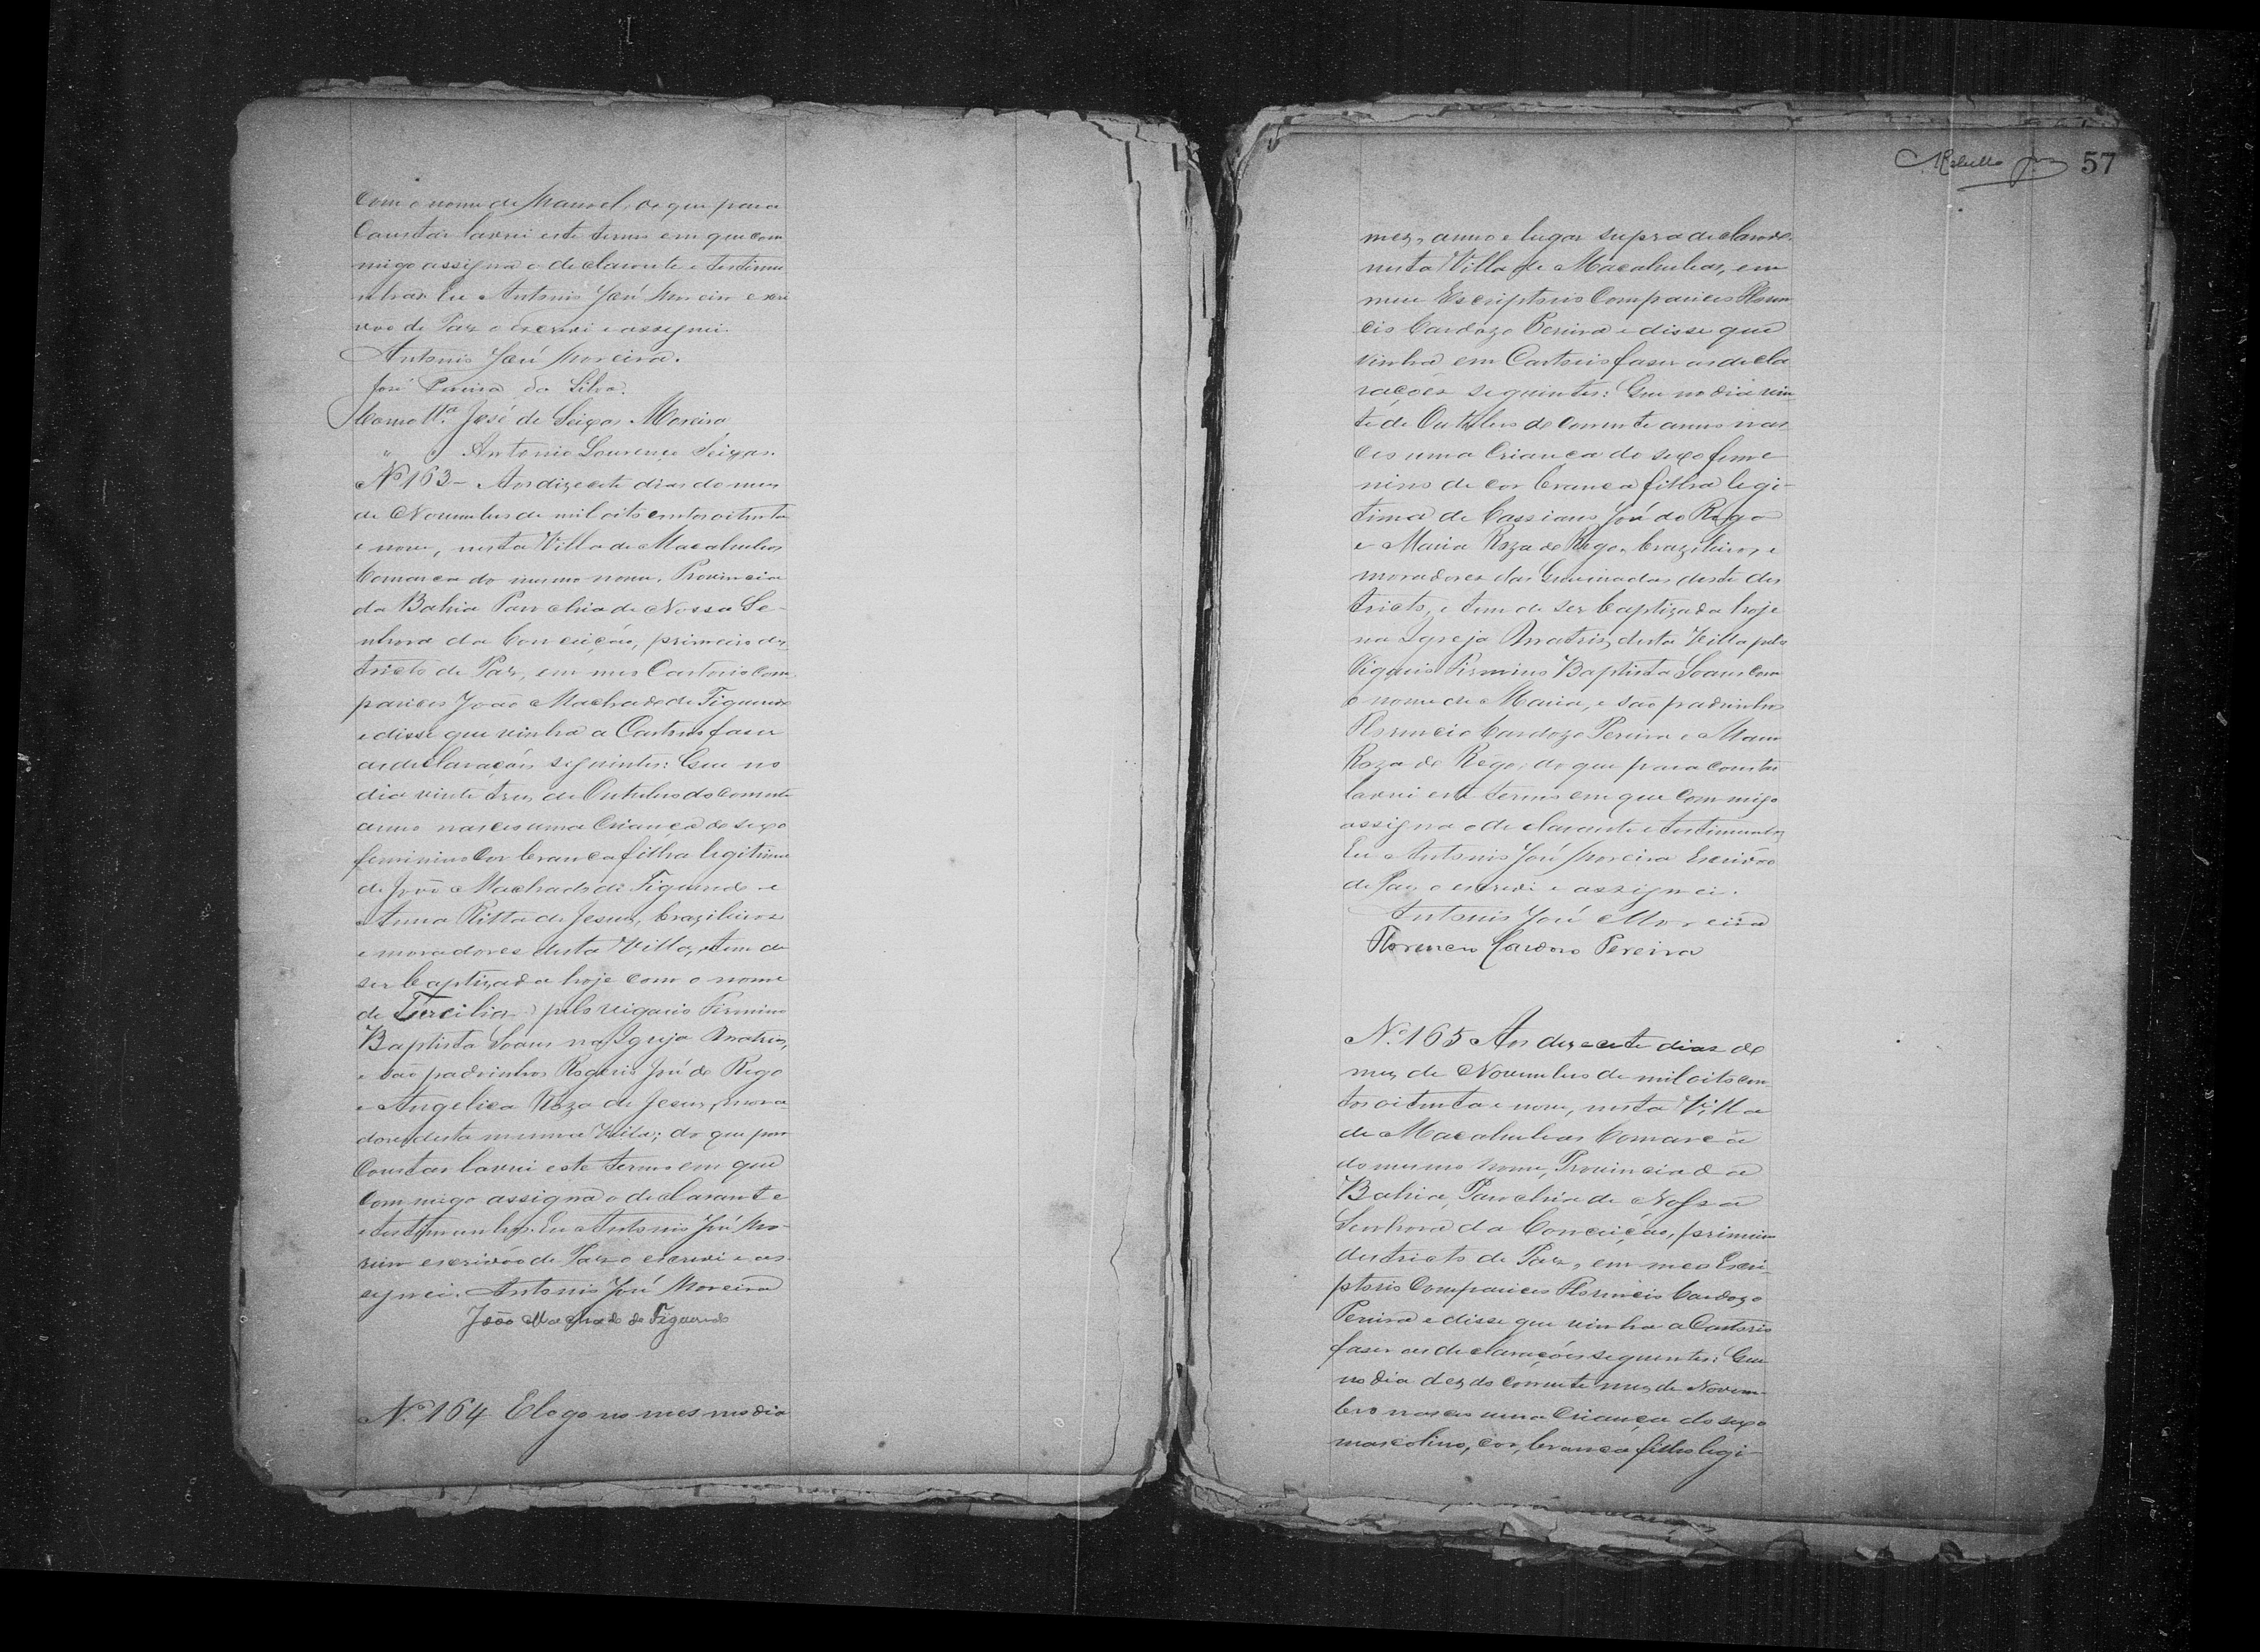 com o nome de Manoel, do que para
Constar lavrei este termo em que com
migo assigna o declarante e testimu
nhas. Eu Antonio José Moreira escri
vão de Paz o escrevi e assignei.
Antonio José Moreira.
José Pereira da Silva.
Como tta. José de Seixas Moreira
" " Antonio Lourenço Seixas.
Nº 163 - Aos dizecete dias do mez
de Novembro de mil oito centos oitenta
e nove, nesta Villa de Macahubas
Comarca do mesmo nome, Provincia
da Bahia Parochia de Nossa Se-
nhora da Conceição, primeiro des
tricto de Paz, em meo Cartorio com
pareceo João Machado de Figueredo
e disse que vinha a Cartorio faser
as declaraçóes seguintes: Que no
dia vinte tres de Outubro do corrente
anno nasceo uma Criança do sexo
feminino Cor branca filha legitima
de João Machado de Figueredo e
Anna Ritta de Jesus, brazileiros
e moradores desta Villa, e tem de
ser baptizada hoje com o nome
de Tercilia pelo vigario Firmino
Baptista Soares na Igreja Matriz,
e são padrinhos Rogerio José do Rego
e Angelica Roza de Jesus, mora-
dores desta mesma Villa; do que para
Constar lavrei este termo em que
Commigo assigna o declarante
e testimunhas. Eu Antonio José Mo-
reira escrivão de Paz o escrevi e as-
signei. Antonio José Moreira
João Machado de Figueredo
Nº 164 E logo no mesmo dia
57
mez, anno e lugar supra declarado.
nesta Villa de Macahubas, em
meu Escriptorio Compareceo Floren
cio Cardozo Pereira e disse que
vinha em Cartorio faser as decla
rações seguintes: Que no dia vin
te de Outubro do corrente anno nas
ceo uma Criança do sexo feme
nino de cor branca filha legi-
tima de Cassiano José do Rego
e Maria Roza do Rego, brazileiros e
moradores das Queimadas deste des
tricto, e tem de ser baptizada hoje
na Igreja Matriz desta Villa pelo
Vigario Firmino Baptista Soares com
o nome de Maria, e são padrinhos
Florencio Cardozo Pereira e Maria
Roza do Rego, do que para constar
lavrei este termo em que commigo
assigna o declarante e testimunhas
Eu Antonio José Moreira Escrivão
de Paz o escrevi e assignei.
Antonio José Moreira
Florencio Cardoso Pereira
Nº 165 Aos dezecete dias do
mez de Novembro de mil oito cen
tos oitenta e nove, nesta Villa
de Macahubas Comarca
do mesmo nome, Provincia da
Bahia, Parochia de Nossa
Senhora da Conceição, primeiro
destricto de Paz, em meo Escri-
ptorio Compareceo Florencio Cardozo
Pereira e disse que vinha a Cartorio
faser as declaraçóes seguintes: Que
no dia dez do corrente mez de Novem-
bro nasceo uma Criança do sexo
mascolino, cor, branca filho legi-